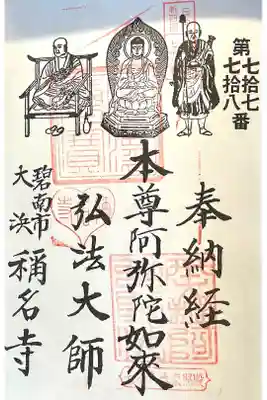 第七拾七
七拾八番
奉納経
本尊阿弥陀如來
弘法大師
碧南市
大浜
稱名寺